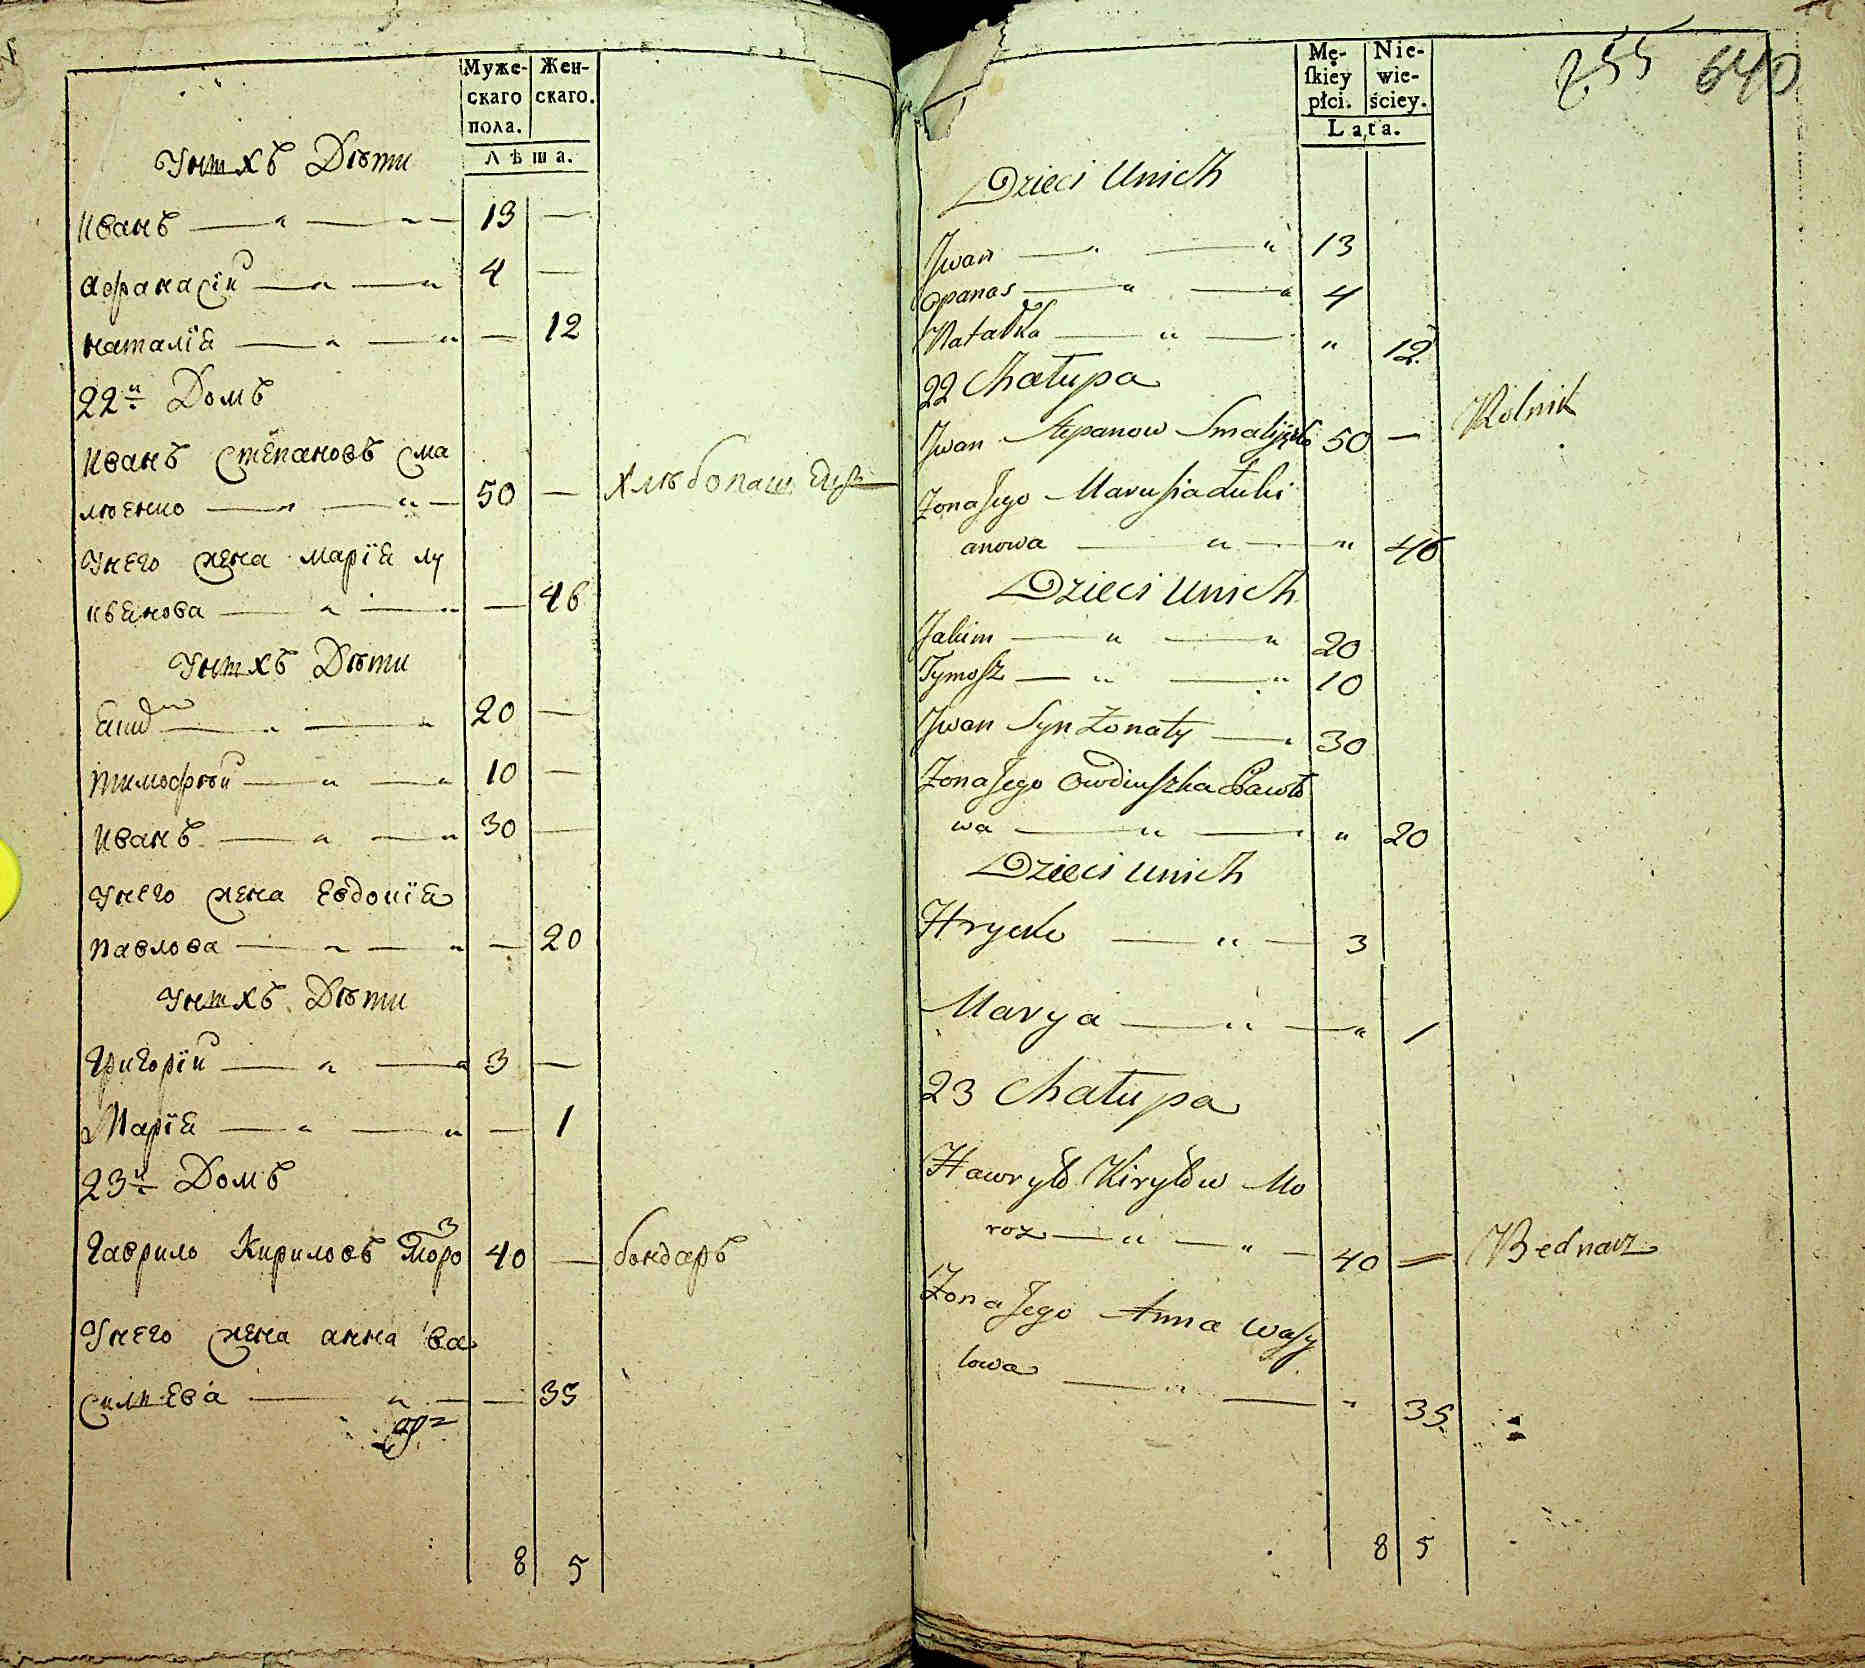 Муже-
скаго
пола.
Жен-
скаго.
Лѣта.
Унихъ Дѣти
Иванъ 13 —
Афанасій 4 —
Наталія — 12
22й Домъ
Иванъ Степановъ Сма
люенко 50 — хлѣбопашецъ
Унего жена Марія Лу
кьянова — 46
Унихъ Дѣти
Еким 20 —
Тимофѣй 10 —
Иванъ 30 —
Унего жена Евдокія
Павлова — 20
Унихъ Дѣти
Григорій 3 —
Марія — 1
23й Домъ
Гаврило Кириловъ Мороз 40 — бондаръ
Унего жена анна ва
сильева — 35
8 5
255 640
Mę-
skiey
płci.
Nie-
wie-
ściey.
Lata.
Dzieci Unich
Jwan 13
Opanas 4
Natałka " 12
22 Chałupa
Jwan Stepanow 50 — Rolnik
Żona Jego Marusia Łuki
anowa " 46
Dzieci Unich
Jakim 20
Tymosz 10
Jwan Syn Żonaty 30
Żona Jego Owdiuszka Pawło
wa " 20
Dzieci Unich
Hrycko 3
Marya " 1
23 Chałupa
Hawryło Kiryłow Mo
roz 40 — Bednarz
Żona Jego Anna Wasy
lowa " 35
8 5